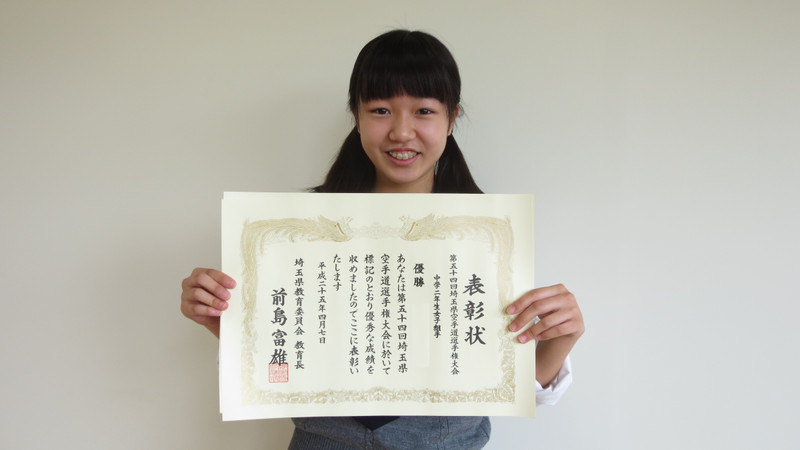 表彰状
第五十四回埼玉県空手道選手権大会
中学二年生女子組手
優勝
あなたは第五十四回埼玉県
空手道選手権大会に於いて
標記のとおり優秀な成績を
収めましたのでここに表彰い
たします
平成二十五年四月七日
埼玉県教育委員会 教育長
前島富雄